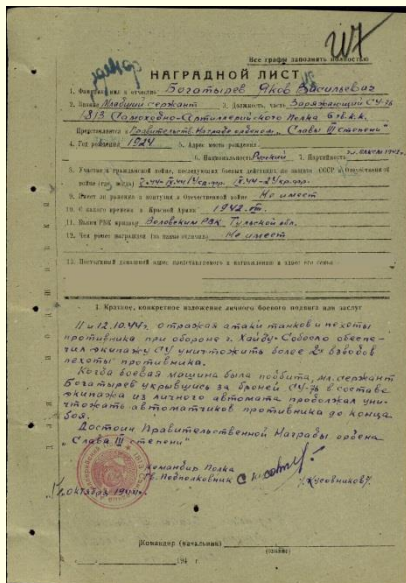 Все графы заполнять полностью
НАГРАДНОЙ ЛИСТ
1. Фамилия, имя и отчество Богатырев Яков Васильевич
2. Звание Младший сержант 3. Должность, часть Заряжающий СУ-76
1313 Самоходно-Артиллерийского Полка
Представляется к Правительств. Награде орденом „Славы III степени"
4. Год рождения 1924 5. Место рождения
6. Национальность Русский 7. Партийность
8. Участие в гражданской войне, последующих боевых действиях по защите СССР и Отечественной
войне (где, когда)
9. Имеет ли ранения и контузии в Отечественной войне Не имеет
10. С какого времени в Красной Армии 1942
11. Каким РВК призван РВК Тульской обл.
12. Чем ранее награжден (за какие отличия) Не имеет
13. Постоянный домашний адрес представляемого к награждению и адрес его семьи
I. Краткое, конкретное изложение личного боевого подвига или заслуг
11 и 12.10.44г. отражая атаки танков и пехоты
противника при обороне г. Хайду-Собосло обеспе-
чил экипажу СУ уничтожать более 2х взводов
пехоты противника.
Когда боевая машина была подбита, мл. сержант
Богатырев укрывшись за броней СУ-76 в составе
экипажа из личного автомата продолжал уни-
чтожать автоматчиков противника до конца
боя.
Достоин Правительственной Награды ордена
„Слава III степени"
Командир Полка
Гв. Подполковник
/Кусовников/.
октября 1944г.
Командир (начальник)
194 г.